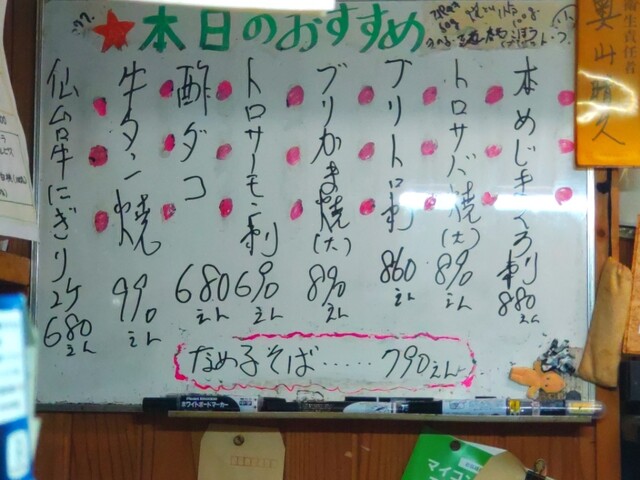 本日のおすすめ
本めじまぐろ刺 880えん
トロサバ焼(大) 890えん
ブリトロ刺 860えん
ブリかま焼(大) 890えん
トロサーモン刺 690えん
酢ダコ 680えん
牛タン焼 990えん
仙台牛にぎり2ケ 680えん
なめ子そば……790えん
衛生責任者
奥山晴久
ホワイトボードマーカー
マイコン